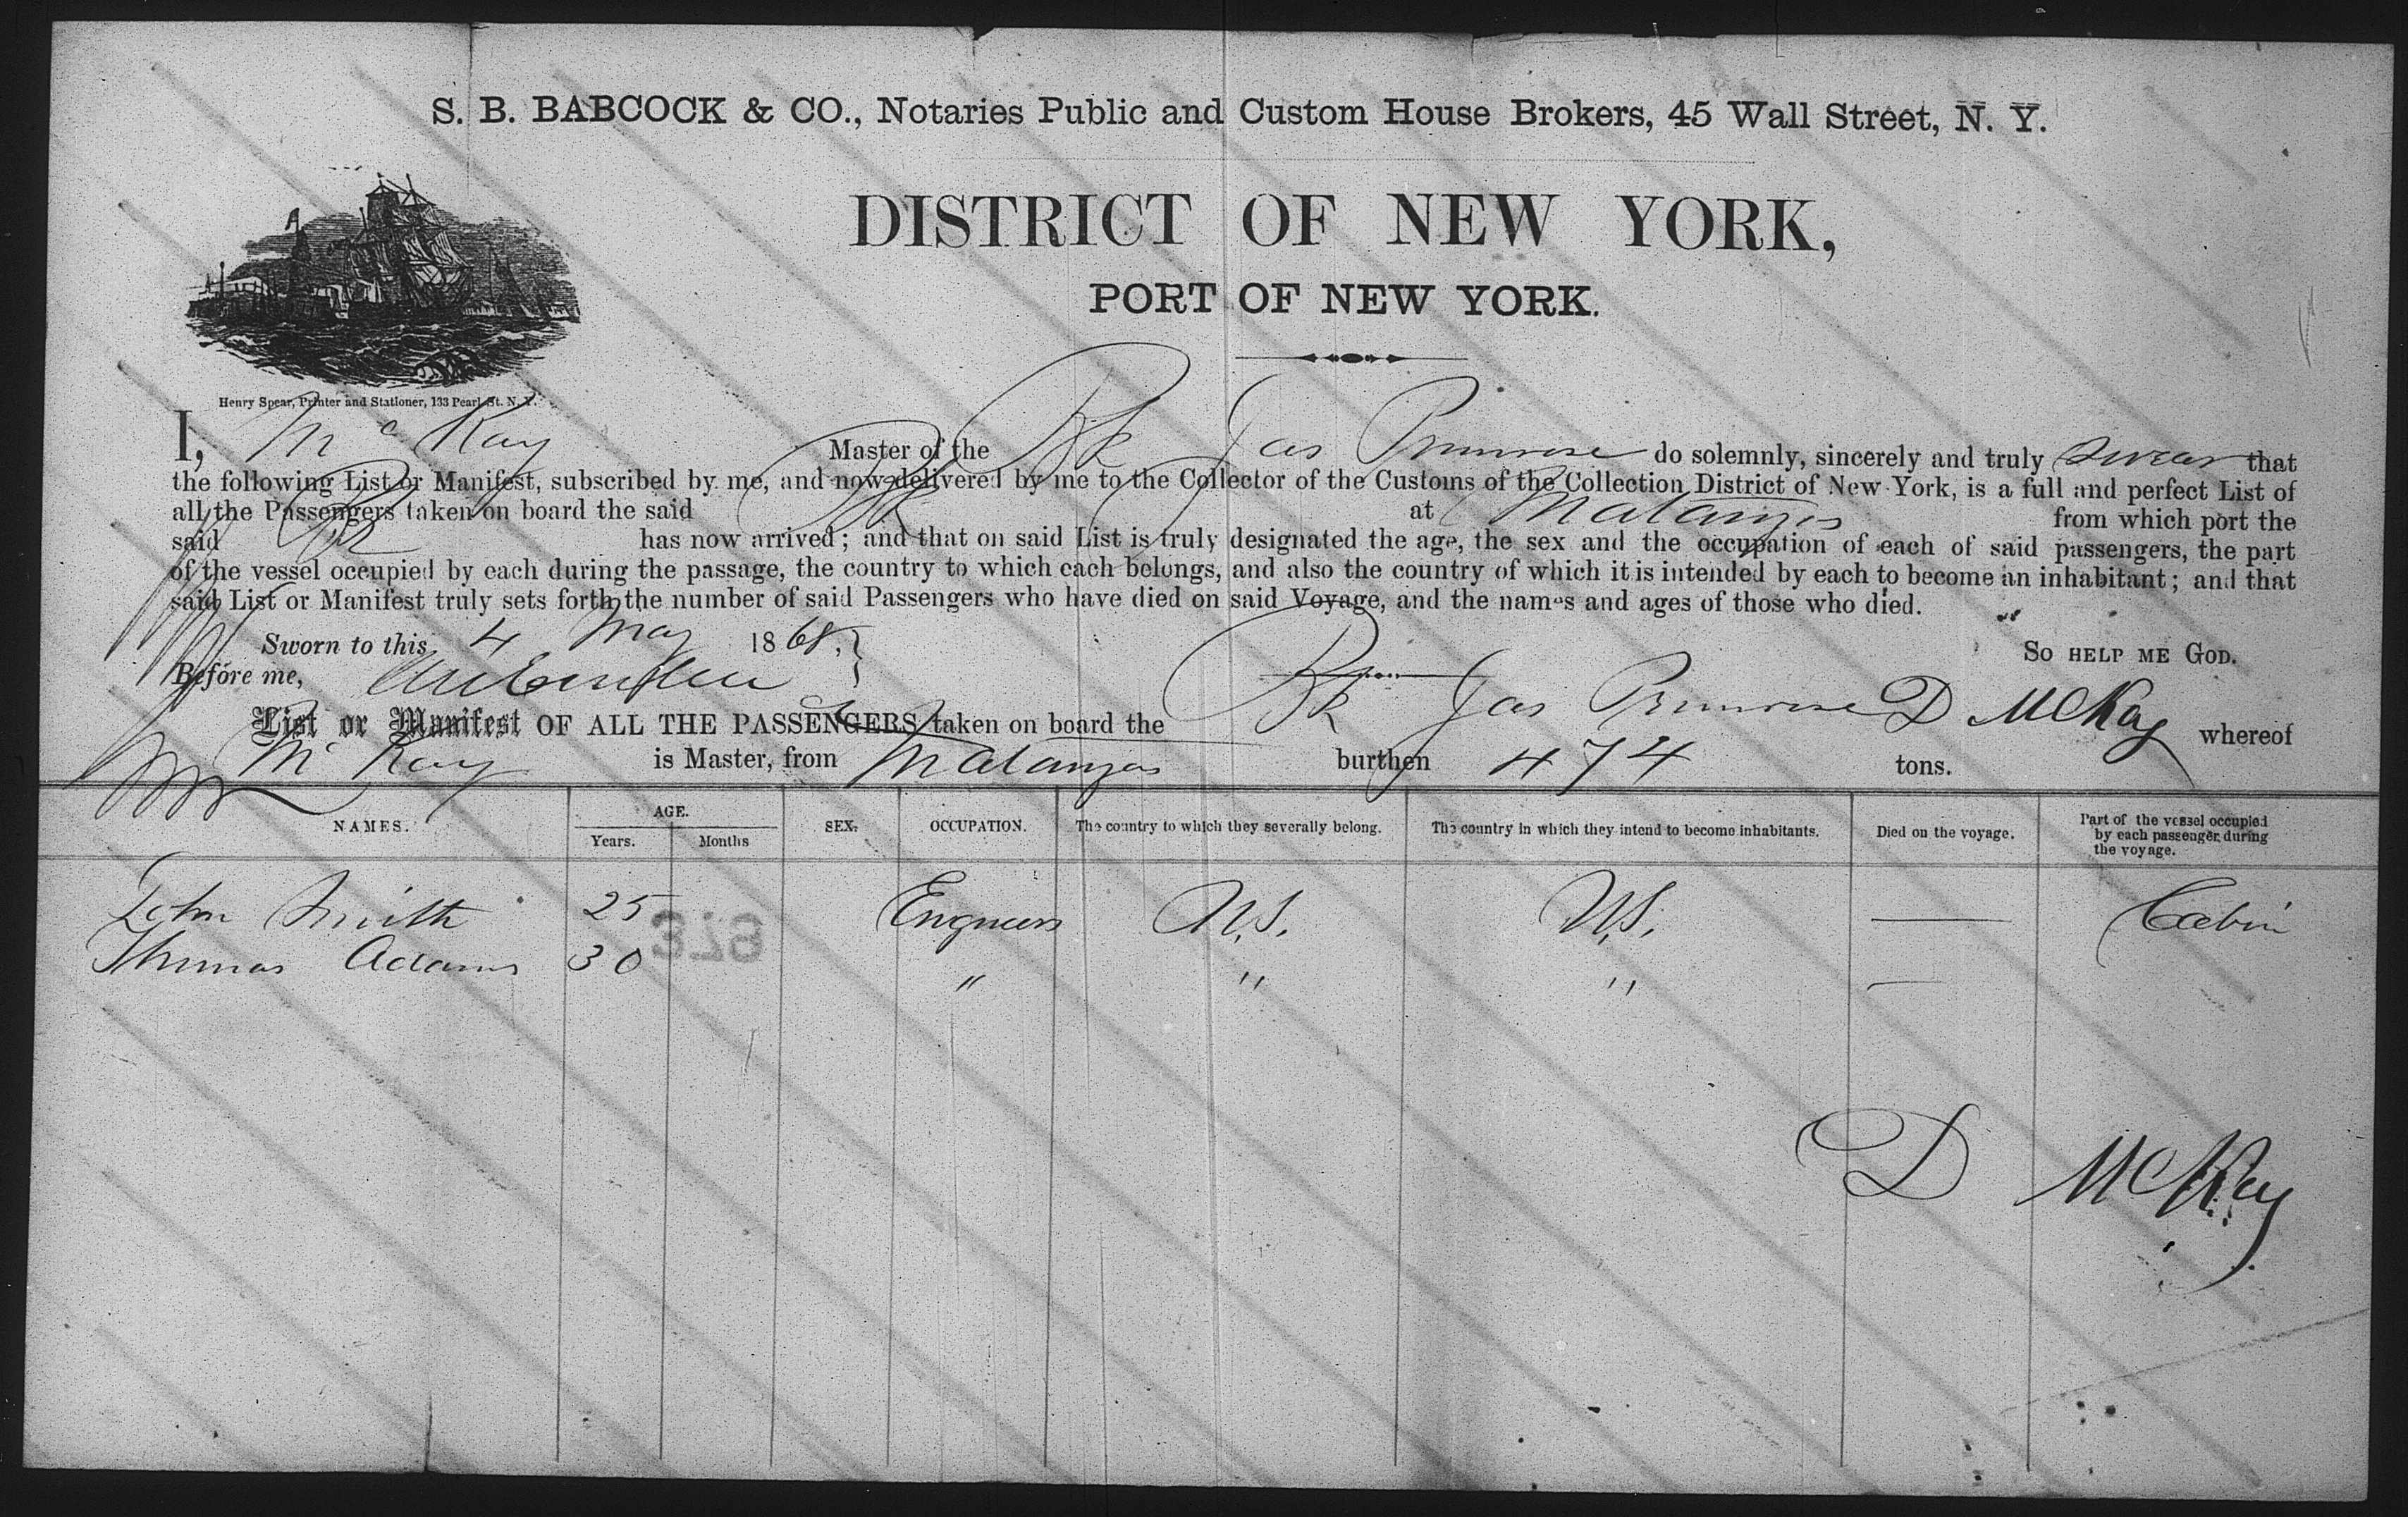 S. B. BABCOCK & CO., Notaries Public and Custom House Brokers, 45 Wall Street, N. Y.
DISTRICT OF NEW YORK,
PORT OF NEW YORK.
Henry Spear, Printer and Stationer, 133 Pearl St. N. Y.
I, McKay Master of the Bk Jas Primrose do solemnly, sincerely and truly swear that
the following List or Manifest, subscribed by me, and now delivered by me to the Collector of the Customs of the Collection District of New York, is a full and perfect List of
all the Passengers taken on board the said Bk at Matanzas from which port the
said Bk has now arrived; and that on said List is truly designated the age, the sex and the occupation of each of said passengers, the part
of the vessel occupied by each during the passage, the country to which each belongs, and also the country of which it is intended by each to become an inhabitant; and that
said List or Manifest truly sets forth the number of said Passengers who have died on said Voyage, and the names and ages of those who died.
Sworn to this 4 May 1868, SO HELP ME GOD.
Before me,
D McKay
List or Manifest OF ALL THE PASSENGERS taken on board the Bk Jas Primrose whereof
McKay is Master, from Matanzas burthen 474 tons.
NAMES. AGE. Years. Months SEX. OCCUPATION. The country to which they severally belong. The country in which they intend to become inhabitants. Died on the voyage. Part of the vessel occupied by each passenger during the voyage.
John Smith 25 Engineers U.S. U.S. — Cabin
Thomas Adams 30 " " " —
378
D McKay